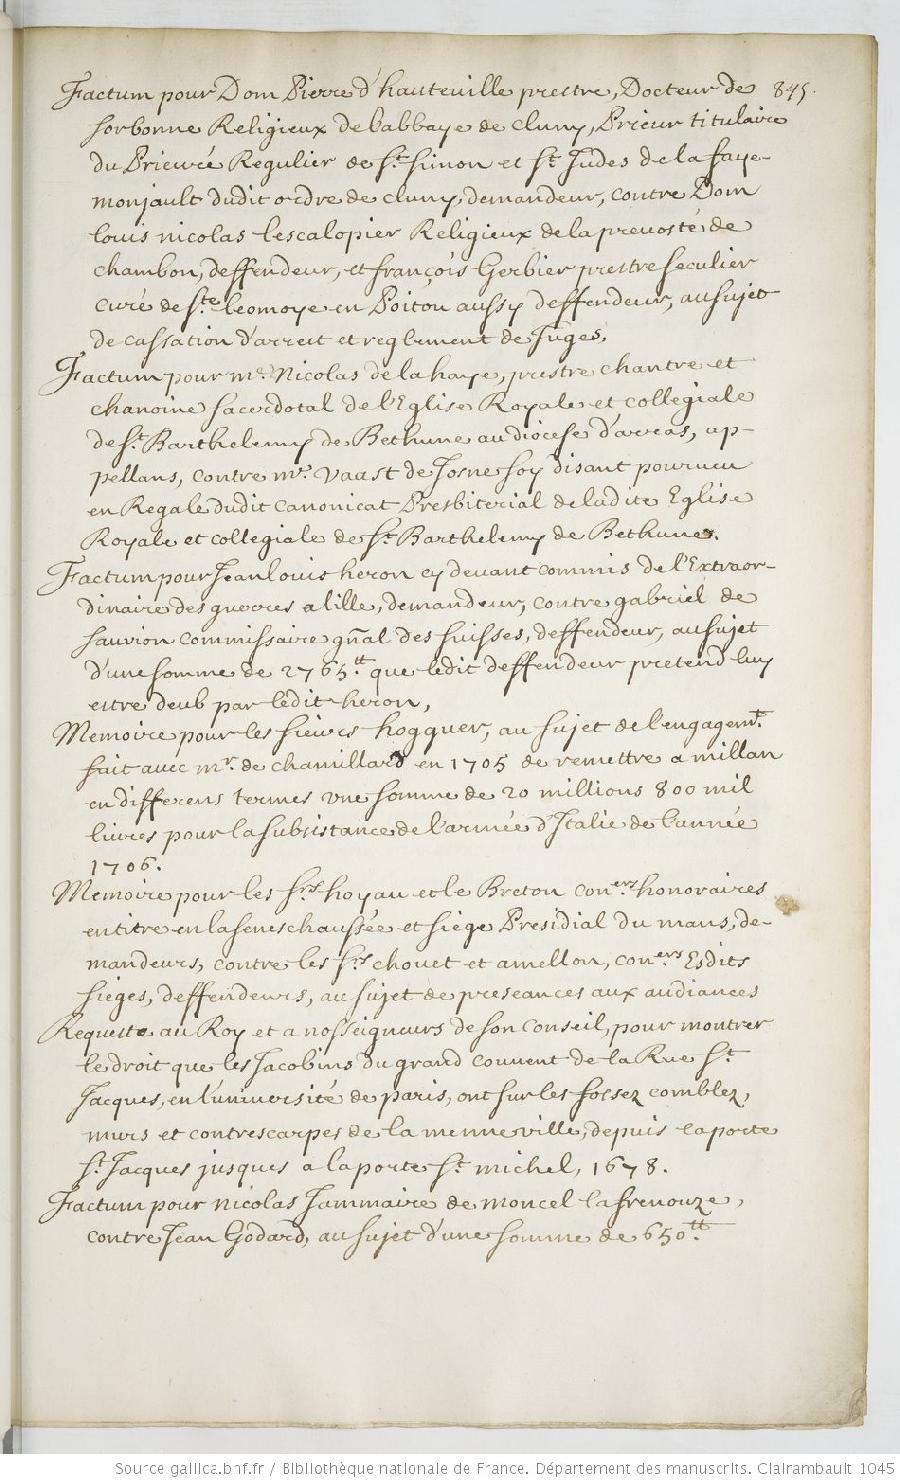 Factum pour Dom Pierre d'hauteuille prestre, Docteur de 845.
sorbonne Religieux de l'abbaye de Cluny, Prieur titulaire
du Prieuré Regulier de St. Simon et St. Judes de la faye-
monjault dudit ordre de cluny, demandeur, contre Dom
louis nicolas lescalopier Religieux de la preuosté de
chambon, deffendeur, et françois Gerbier prestre seculier
curé de Ste. leomoye en Poitou aussy deffendeur, au sujet
de cassation d'arrest et reglement de Juges.
Factum pour me. Nicolas de la haye, prestre chantre et
chanoine sacerdotal de l'Eglise Royale et collegiale
de St. Barthelemy de Bethune au diocese d'arras, ap-
pellans, contre mr. Vaast de Josne soy disant pourueu
en Regale dudit canonicat Presbiterial de ladite Eglise
Royale et collegiale de St. Barthelemy de Bethune.
Factum pour Jean louis heron cy deuant commis de l'Extraor-
dinaire des guerres a lille, demandeur, contre gabriel de
saurion commissaire gñal des suisses, deffendeur, au sujet
d'une somme de 2765tt. que ledit deffendeur pretend luy
estre deub par ledit heron,
Memoire pour les sieurs hogguer, au sujet de l'engagemt.
fait auec mr. de chamillard en 1705 de remettre a millan
en differens termes vne somme de 20 millions 800 mil
liures pour la subsistance de l'armée d'Italie de l'année
1706.
Memoire pour les srs. hoyau et le Breton coners. honoraires
en titre en la seneschaussée et siége Presidial du mans, de-
mandeurs, contre les srs. chouet et amellon, coners Esdits
siéges, deffendeurs, au sujet de preseances aux audiances
Requeste au Roy et a nosseigneurs de son conseil, pour montrer
le droit que les Jacobins du grand couuent de la Rue St.
Jacques, en l'uniuersité de paris, ont sur les fossez comblez,
murs et contrescarpes de la menne ville, depuis la porte
St. Jacques jusques a la porte St. michel, 1678.
Factum pour nicolas Jammaire de moncel la frenouze,
contre Jean Godard, au sujet d'une somme de 650tt.
Source gallica.bnf.fr / Bibliothèque nationale de France. Département des manuscrits. Clairambault 1045